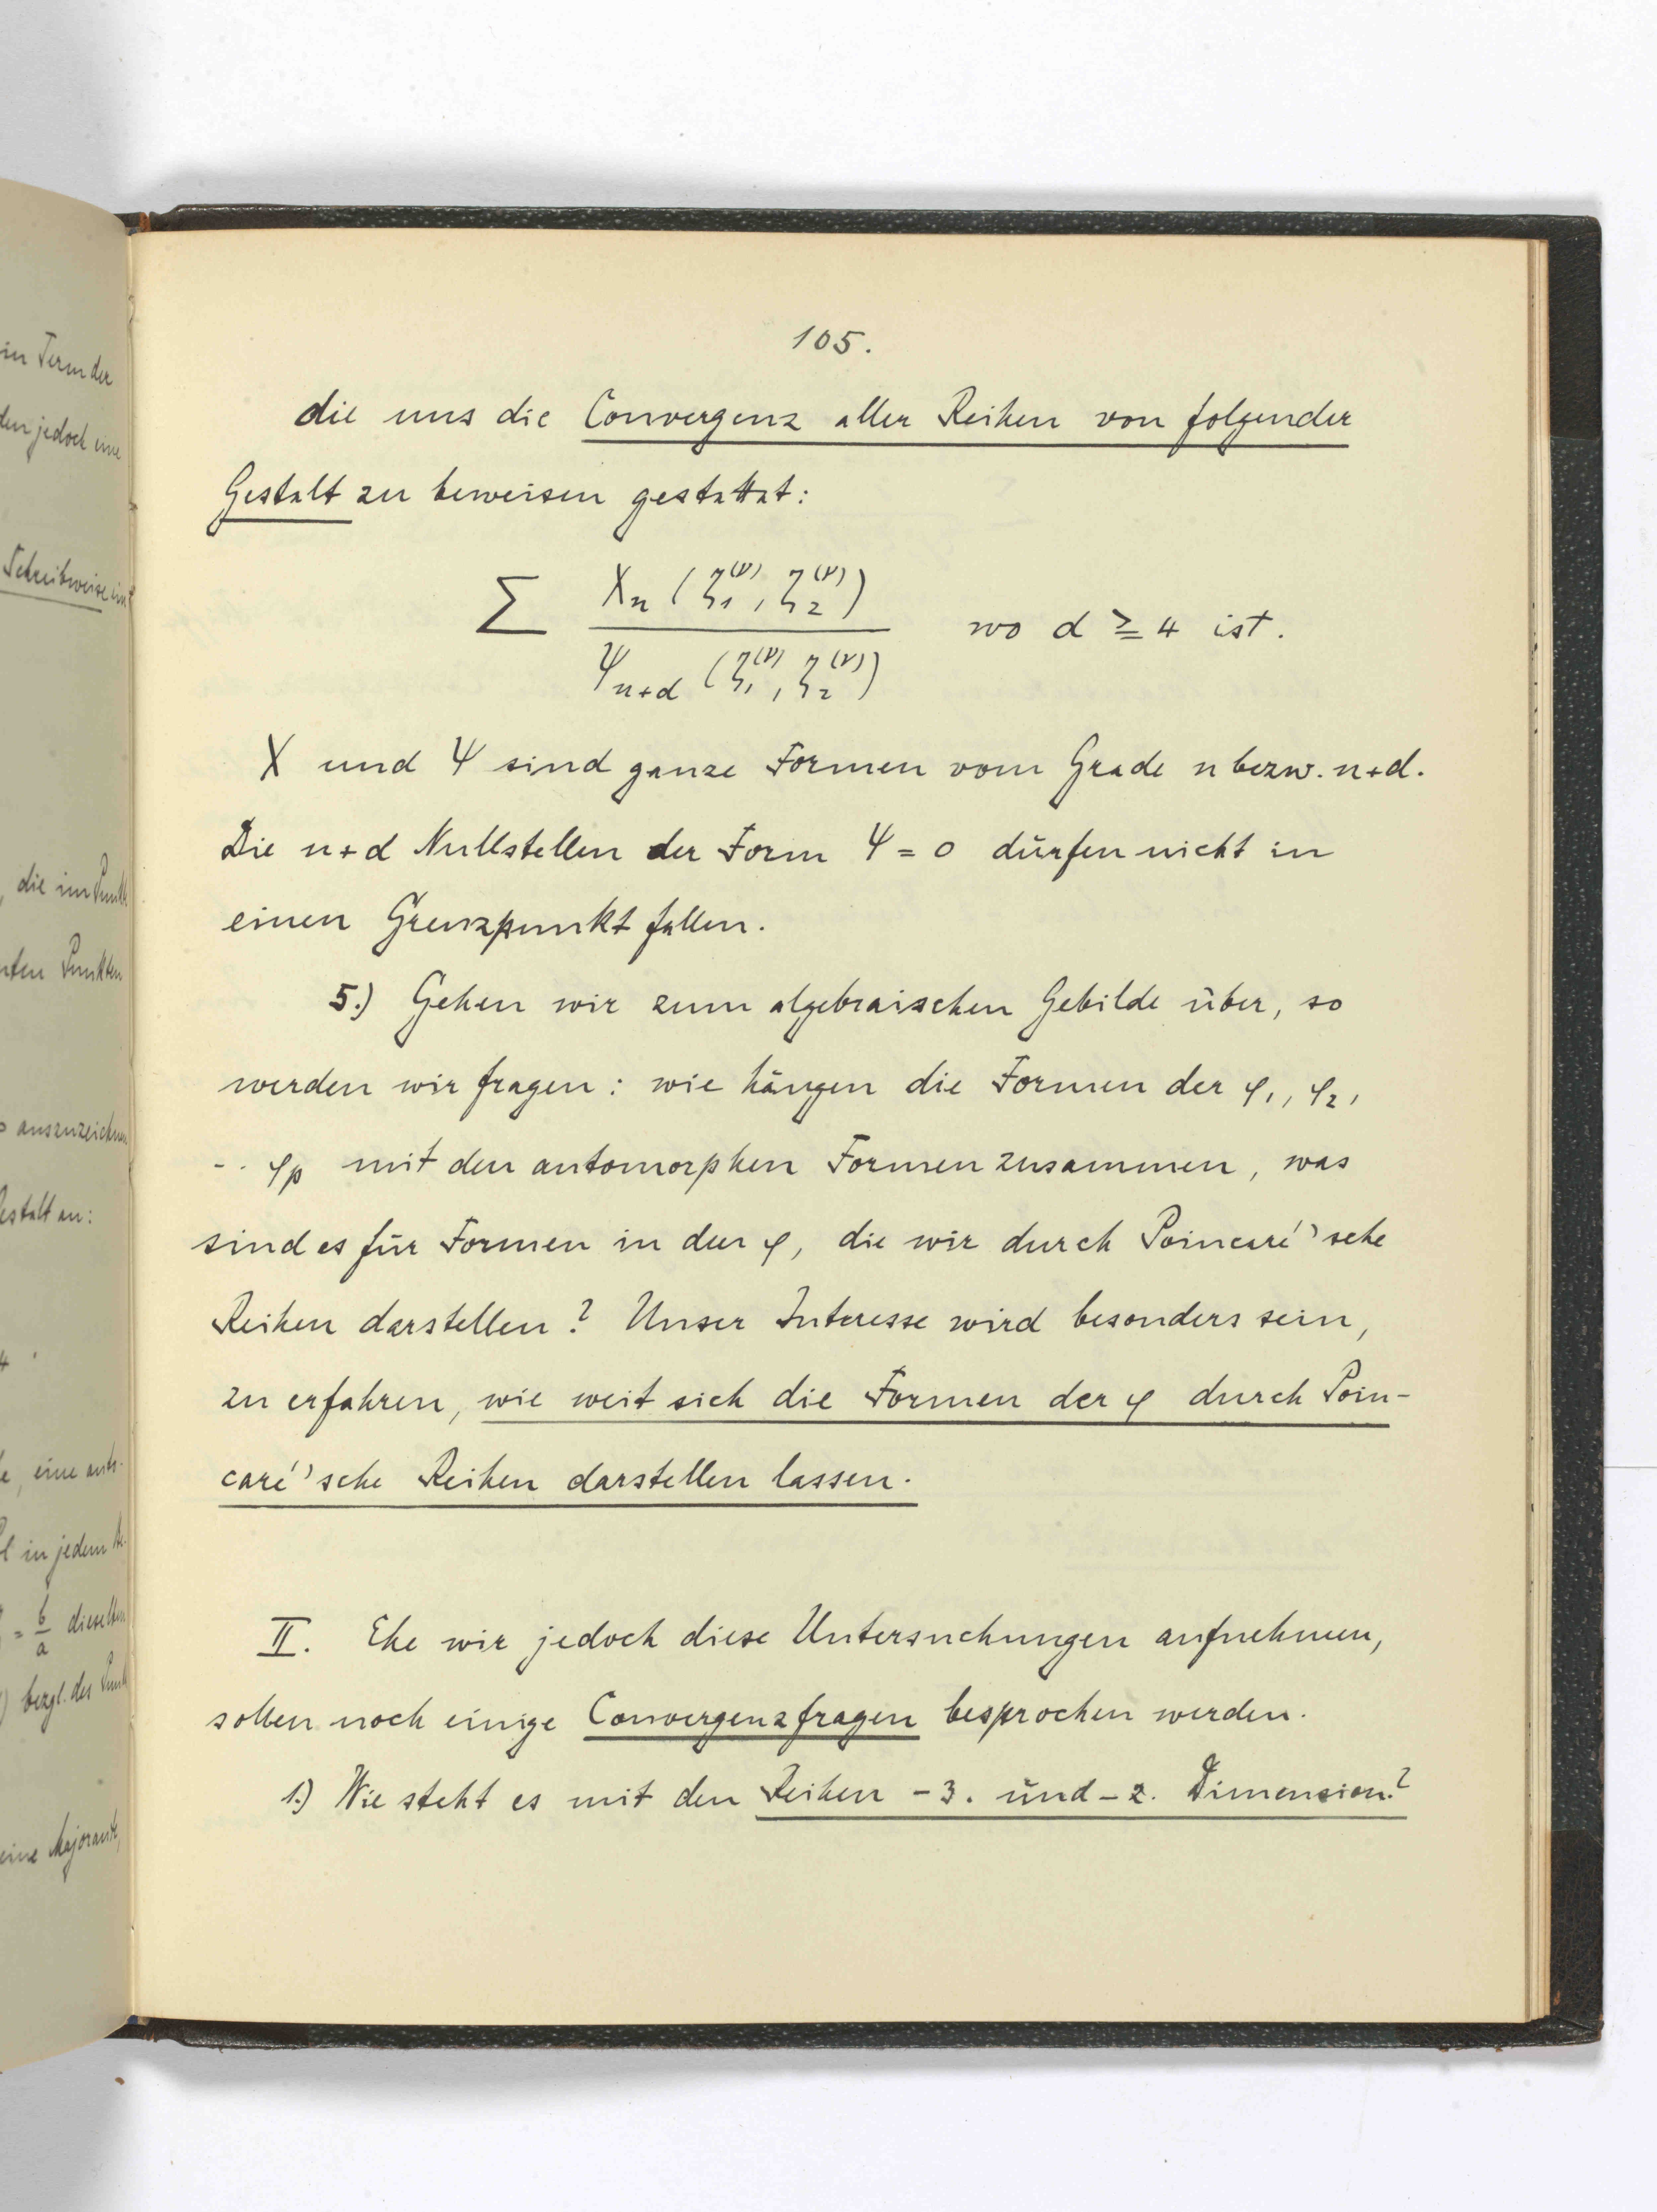 105.
die uns die Convergenz aller Reihen von folgender
Gestalt zu beweisen gestattet:
∑ Χn (ζ1^(ν), ζ2^(ν)) / Ψn+d (ζ1^(ν), ζ2^(ν)) wo d ≧ 4 ist.
Χ und Ψ sind ganze Formen vom Grade n bezw. n+d.
Die n+d Nullstellen der Form Ψ = 0 dürfen nicht in
einen Grenzpunkt fallen.
5.) Gehen wir zum algebraischen Gebilde über, so
werden wir fragen: wie hängen die Formen der φ1, φ2,
.. φp mit den automorphen Formen zusammen, was
sind es für Formen in den φ, die wir durch Poincaré'sche
Reihen darstellen? Unser Interesse wird besonders sein,
zu erfahren, wie weit sich die Formen der φ durch Poin-
caré'sche Reihen darstellen lassen.
II. Ehe wir jedoch diese Untersuchungen aufnehmen,
sollen noch einige Convergenzfragen besprochen werden.
1.) Wie steht es mit den Reihen -3. und -2. Dimension?
in Term der
den jedoch eine
Schreibweise
die im Punkte
Punkten
auszuzeichnen
Gestalt an:
4
eine
in jedem
= b/a dieselben
bezgl. des Punkt
eine Majorante,